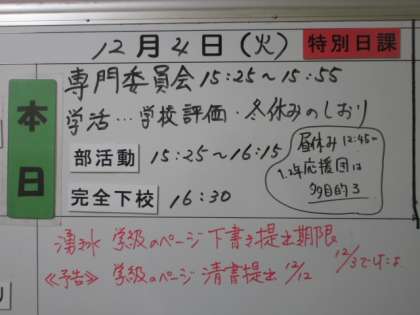 12月4日(火) 特別日課
本日
専門委員会 15:25~15:55
学活…学校評価・冬休みのしおり
部活動 15:25~16:15
昼休み 12:45~
1.2年応援団は
多目的3
完全下校 16:30
湧水 学級のページ 下書き提出期限
≪予告≫ 学級のページ 清書提出 12/12
12/3でけは
り